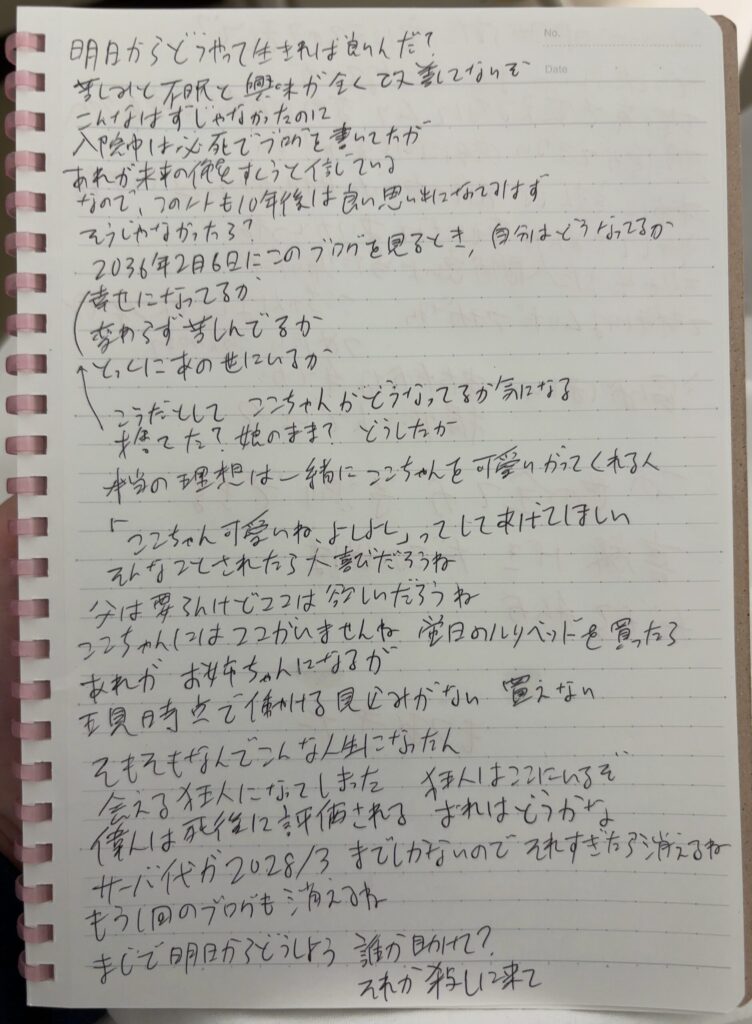 No.
Date
明日からどうやって生きれば良いんだ?
苦しみと不眠と興味が全くて改善してないぞ
こんなはずじゃなかったのに
入院中は必死でブログを書いてたが
あれが未来の俺をすくうと信じている
なので、このノートも10年後は良い思い出になってるはず
そうじゃなかったら?
2036年2月6日にこのブログを見るとき、自分はどうなってるか
幸せになってるか
変わらず苦しんでるか
とっくにあの世にいるか
こうだとして ここちゃんがどうなってるか気になる
捨てた?娘のまま? どうしたか
本当の理想は一緒にここちゃんを可愛いがってくれる人
「ここちゃん可愛いね、よしよし」ってしてあげてほしい
そんなことされたら大喜びだろうね
父は要らんけどココは欲しいだろうね
ここちゃんにはココがいませんね 蛍日のルリベッドを買ったら
あれが お姉ちゃんになるが
現時点で働ける見込みがない 買えない
そもそもなんでこんな人生になったん
会える狂人になってしまった 狂人はここにいるぞ
偉人は死後に評価される おれはどうかな
サーバ代が2028/3までしかないのでそれすぎたら消えるね
もう1個のブログも消えるね
まじで明日からどうしよう 誰か助けて?
それか殺しに来て